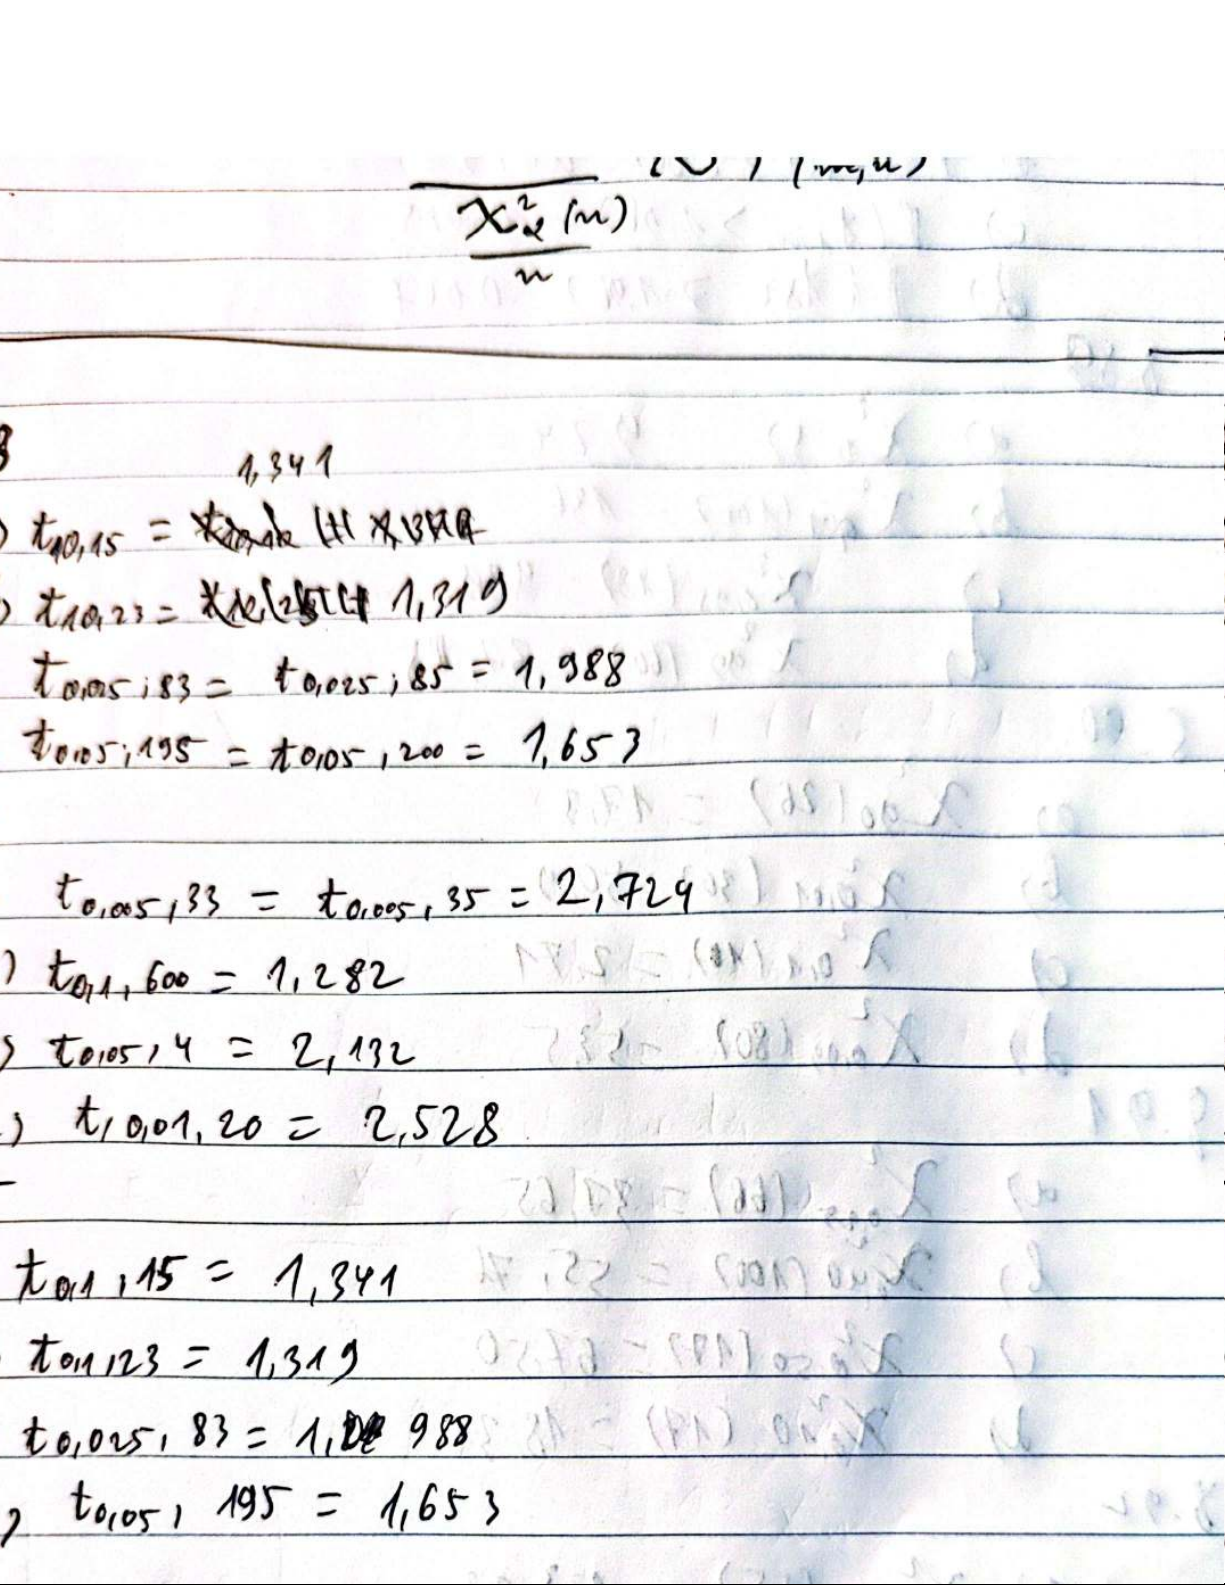 χ²α (n)
n
1,341
t10,15 =
t10,23 = 1,319
t0,025;83 = t0,025;85 = 1,988
t0,05;195 = t0,05,200 = 1,653
t0,005,33 = t0,005,35 = 2,724
) t0,1,600 = 1,282
t0,05,4 = 2,132
t,0,01,20 = 2,528
t0,1,15 = 1,341
t0,1,23 = 1,319
t0,025, 83 = 1, 988
t0,05, 195 = 1,653